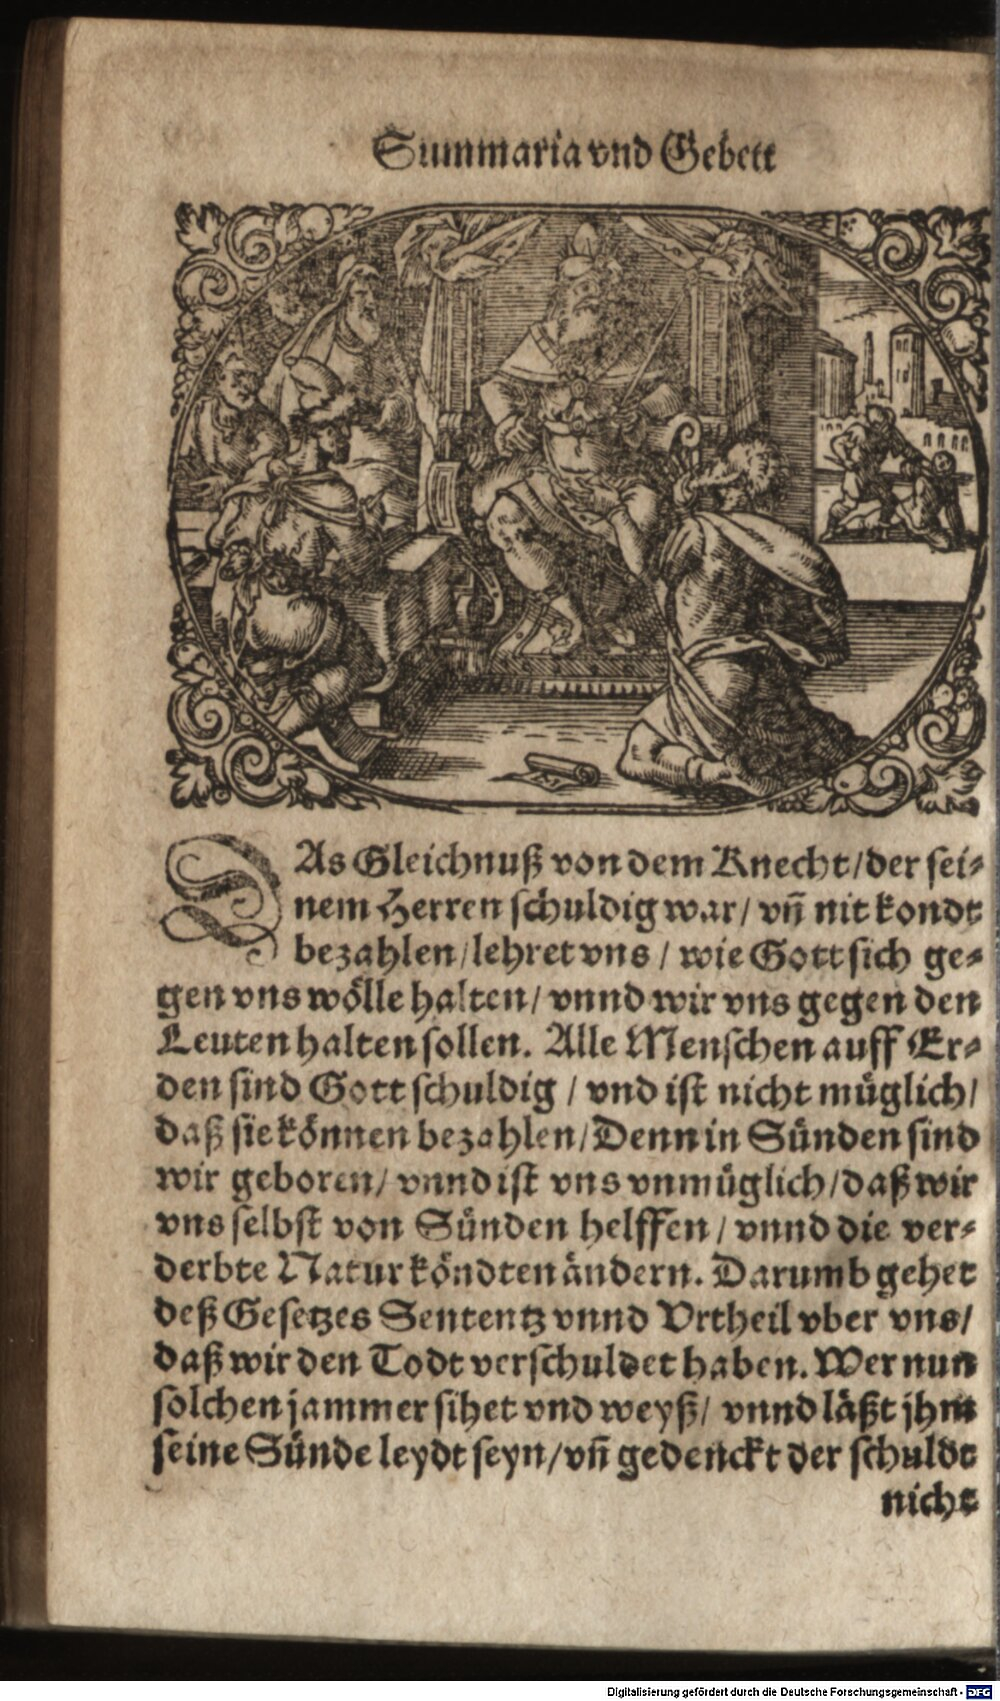 Summaria vnd Gebett
DAs Gleichnuß von dem Knecht/der sei⸗
nem Herren schuldig war/ vñ nit kondt
bezahlen/lehret vns / wie Gott sich ge⸗
gen vns wölle halten/ vnnd wir vns gegen den
Leuten halten sollen. Alle Menschen auff Er⸗
den sind Gott schuldig / vnd ist nicht müglich/
daß sie können bezahlen/Denn in Sünden sind
wir geboren/ vnnd ist vns vnmüglich/daß wir
vns selbst von Sünden helffen/ vnnd die ver⸗
derbte Natur köndten ändern. Darumb gehet
deß Gesetzes Sententz vnnd Vrtheil vber vns/
daß wir den Todt verschuldet haben. Wer nun
solchen jammer sihet vnd weyß/ vnnd läßt jhm
seine Sünde leydt seyn/vñ gedenckt der schuldt
nicht
Digitalisierung gefördert durch die Deutsche Forschungsgemeinschaft - DFG